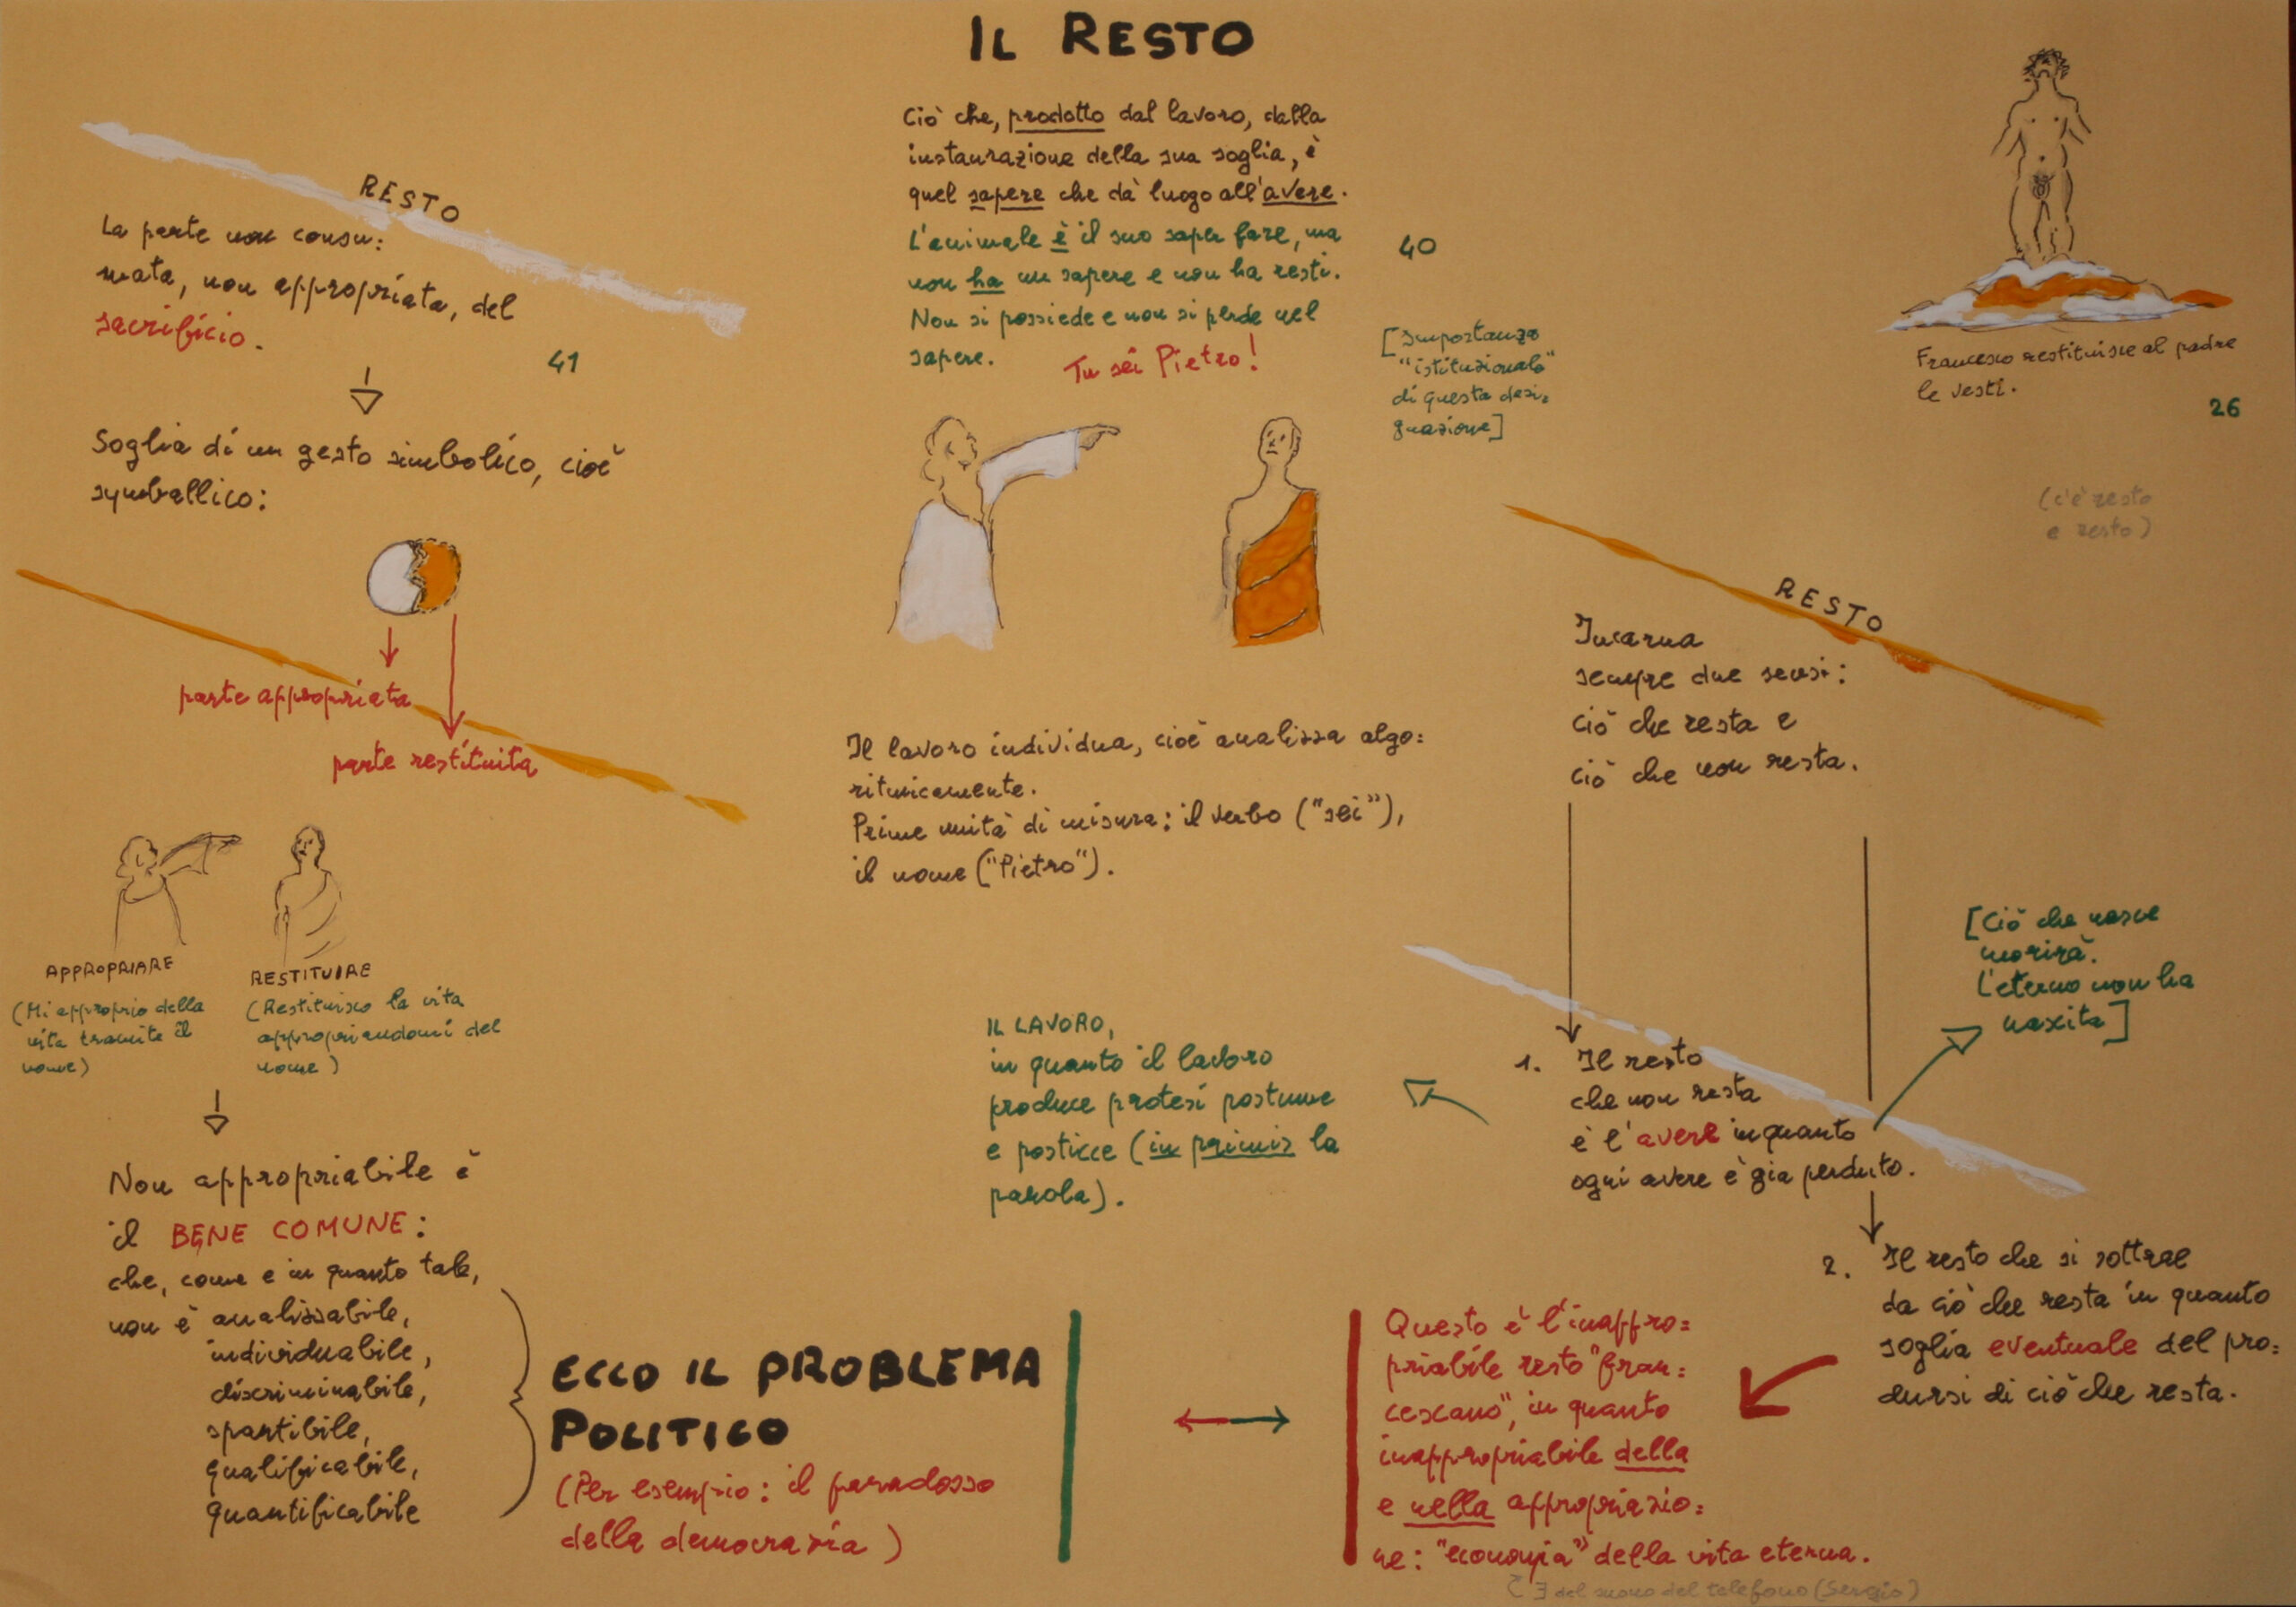 IL RESTO
RESTO
La parte non consu:
mata, non appropriata, del
sacrificio.
41
Soglia di un gesto simbolico, cioè
symballico:
parte appropriata
parte restituita
APPROPRIARE
(Mi approprio della
vita tramite il
nome)
RESTITUIRE
(Restituisco la vita
appropriandomi del
nome)
Non appropriabile è
il BENE COMUNE:
che, come e in quanto tale,
non è analizzabile,
individuabile,
discriminabile,
spartibile,
qualificabile,
quantificabile
ECCO IL PROBLEMA
POLITICO
(Per esempio: il paradosso
della democrazia)
Ciò che, prodotto dal lavoro, dalla
instaurazione della sua soglia, è
quel sapere che dà luogo all'avere.
L'animale è il suo saper fare, ma
non ha un sapere e non ha resti.
Non si possiede e non si perde nel
sapere.
Tu sei Pietro!
40
[Importanza
"istituzionale"
di questa desi:
gnazione]
Il lavoro individua, cioè analizza algo:
ritmicamente.
Prime unità di misura: il verbo ("sei"),
il nome ("Pietro").
IL LAVORO,
in quanto il lavoro
produce protesi postume
e posticce (in primis la
parola).
Francesco restituisce al padre
le vesti.
26
(c'è resto
e resto)
RESTO
Incarna
sempre due sensi:
ciò che resta e
ciò che non resta.
[Ciò che nasce
morirà.
L'eterno non ha
nascita]
1. Il resto
che non resta
è l'avere in quanto
ogni avere è già perduto.
2. Il resto che si sottrae
da ciò che resta in quanto
soglia eventuale del pro:
dursi di ciò che resta.
Questo è l'inappro:
priabile resto "fran:
cescano", in quanto
inappropriabile della
e nella appropriazio:
ne: "economia" della vita eterna.
del suono del telefono (Sergio)